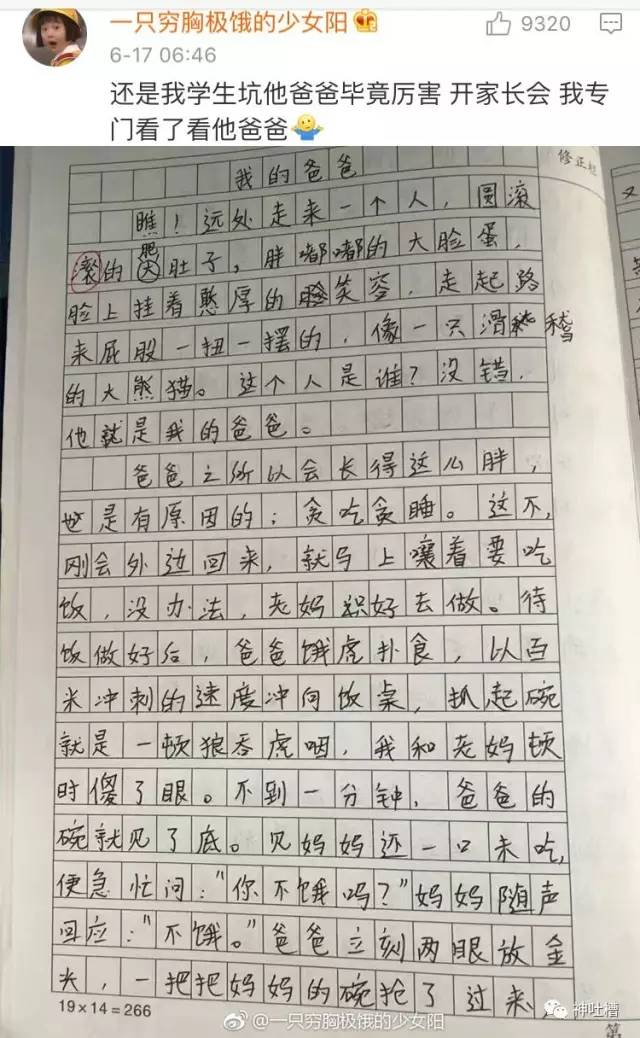 一只穷胸极饿的少女阳
9320
6-17 06:46
还是我学生坑他爸爸毕竟厉害 开家长会 我专
门看了看他爸爸🤷‍♂️
修正栏
我的爸爸
瞧！远处走来一个人，圆滚
滚的肥大肚子，胖嘟嘟的大脸蛋，
脸上挂着憨厚的笑容，走起路
来屁股一扭一摆的，像一只滑稽
的大熊猫。这个人是谁？没错，
他就是我的爸爸。
爸爸之所以会长得这么胖，
也是有原因的：贪吃贪睡。这不，
刚会外边回来，就马上嚷着要吃
饭，没办法，老妈只好去做。待
饭做好后，爸爸饿虎扑食，以百
米冲刺的速度冲向饭桌，抓起碗
就是一顿狼吞虎咽，我和老妈顿
时傻了眼。不到一分钟，爸爸的
碗就见了底。见妈妈还一口未吃，
便急忙问："你不饿吗？"妈妈随声
回应："不饿。"爸爸立刻两眼放金
光，一把把妈妈的碗抢了过来，
19×14=266
@一只穷胸极饿的少女阳
神吐槽
第